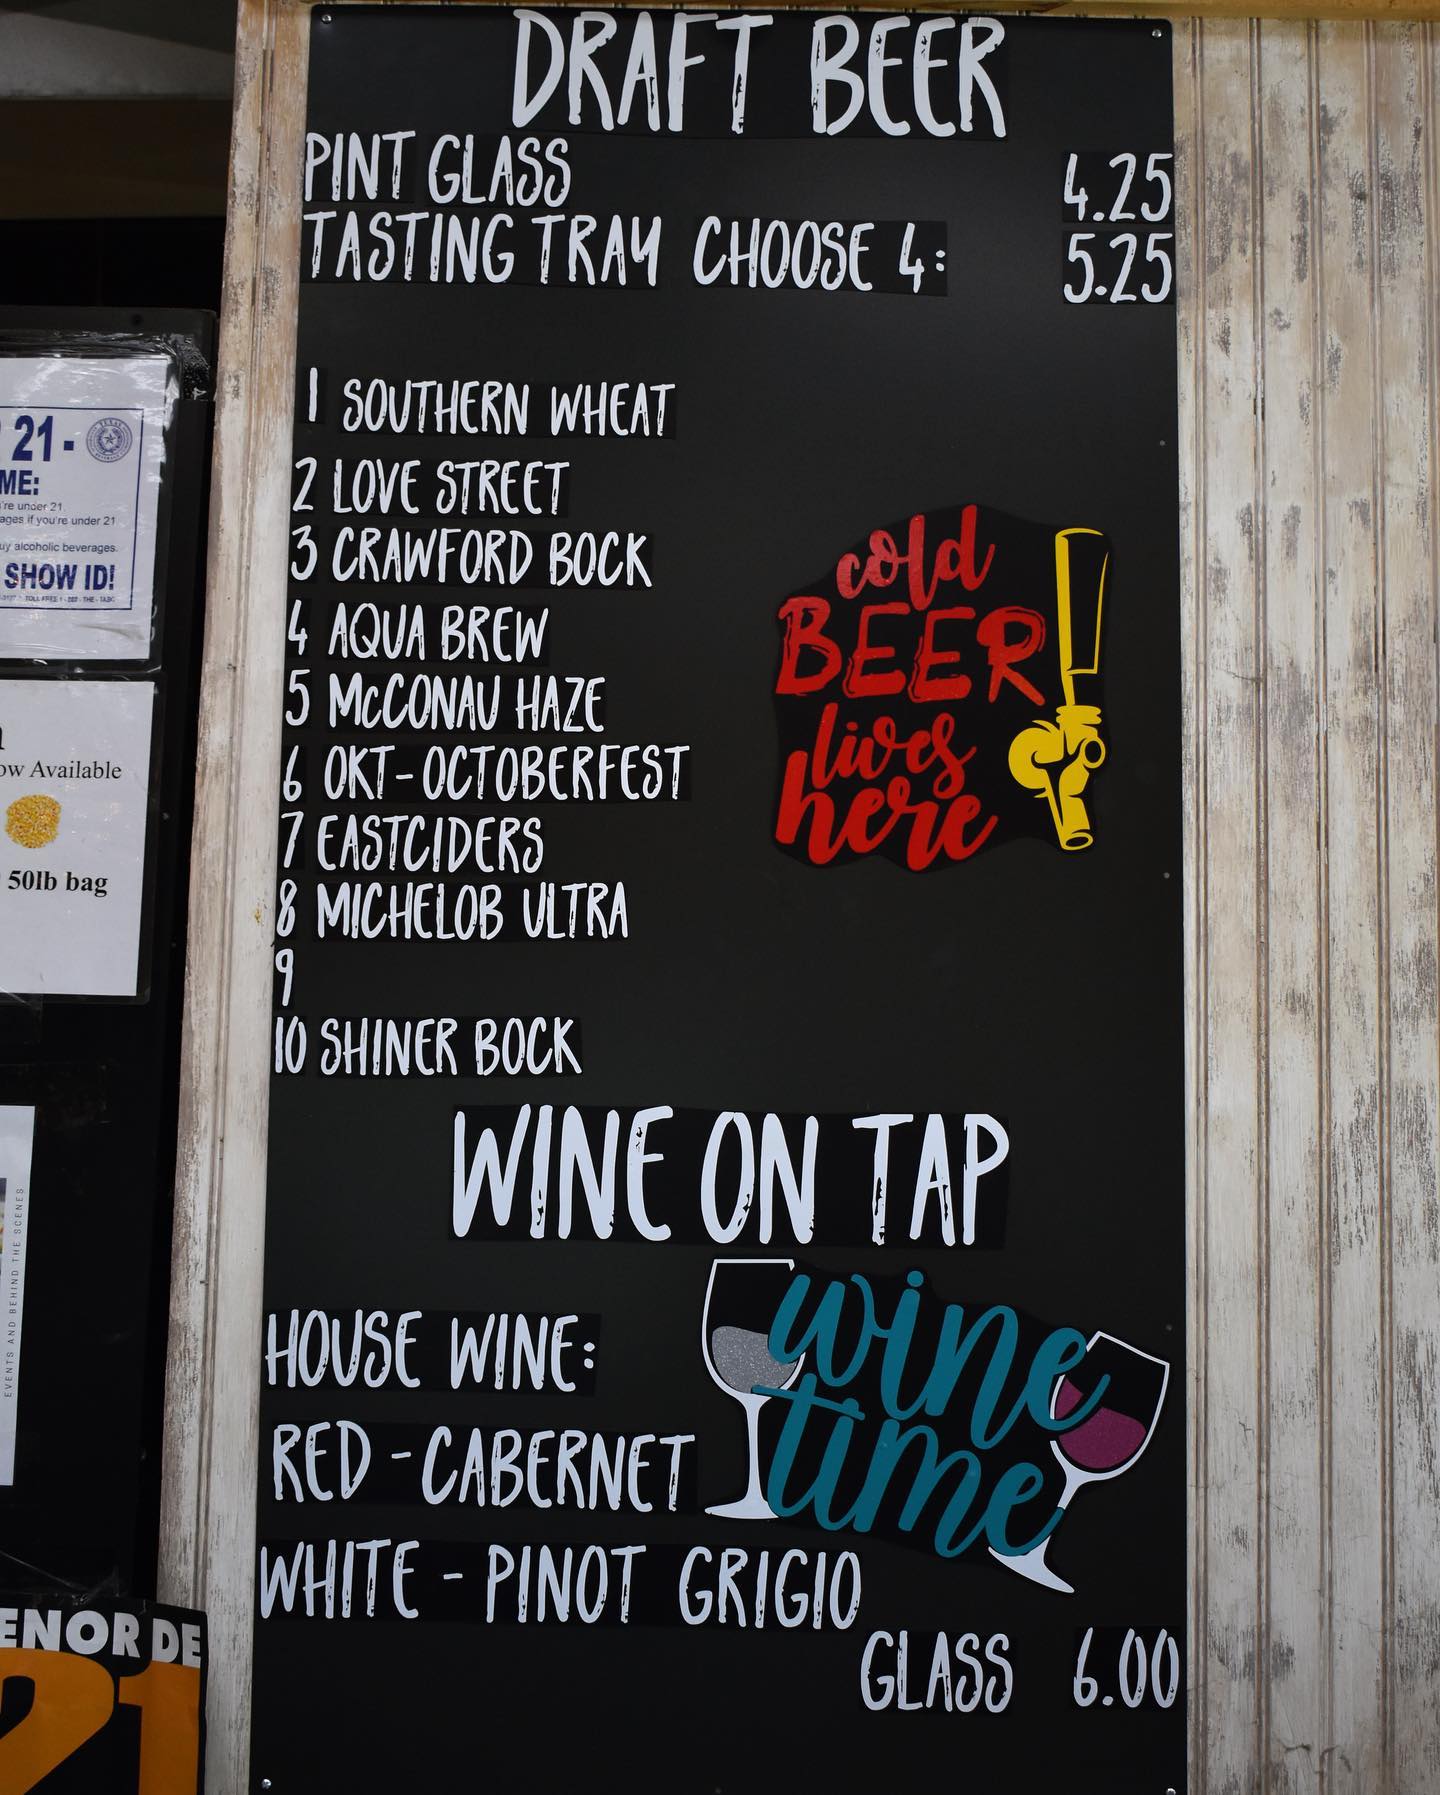 DRAFT BEER
PINT GLASS 4.25
TASTING TRAY CHOOSE 4: 5.25
1 SOUTHERN WHEAT
2 LOVE STREET
3 CRAWFORD BOCK
4 AQUA BREW
5 McCONAU HAZE
6 OKT-OCTOBERFEST
7 EASTCIDERS
8 MICHELOB ULTRA
9
10 SHINER BOCK
cold
BEER
lives
here
WINE ON TAP
HOUSE WINE:
RED - CABERNET
WHITE - PINOT GRIGIO
GLASS 6.00
wine
time
21 -
ME:
're under 21.
ages if you're under 21
uy alcoholic beverages.
SHOW ID!
ow Available
50lb bag
EVENTS AND BEHIND THE SCENES
ENOR DE
21